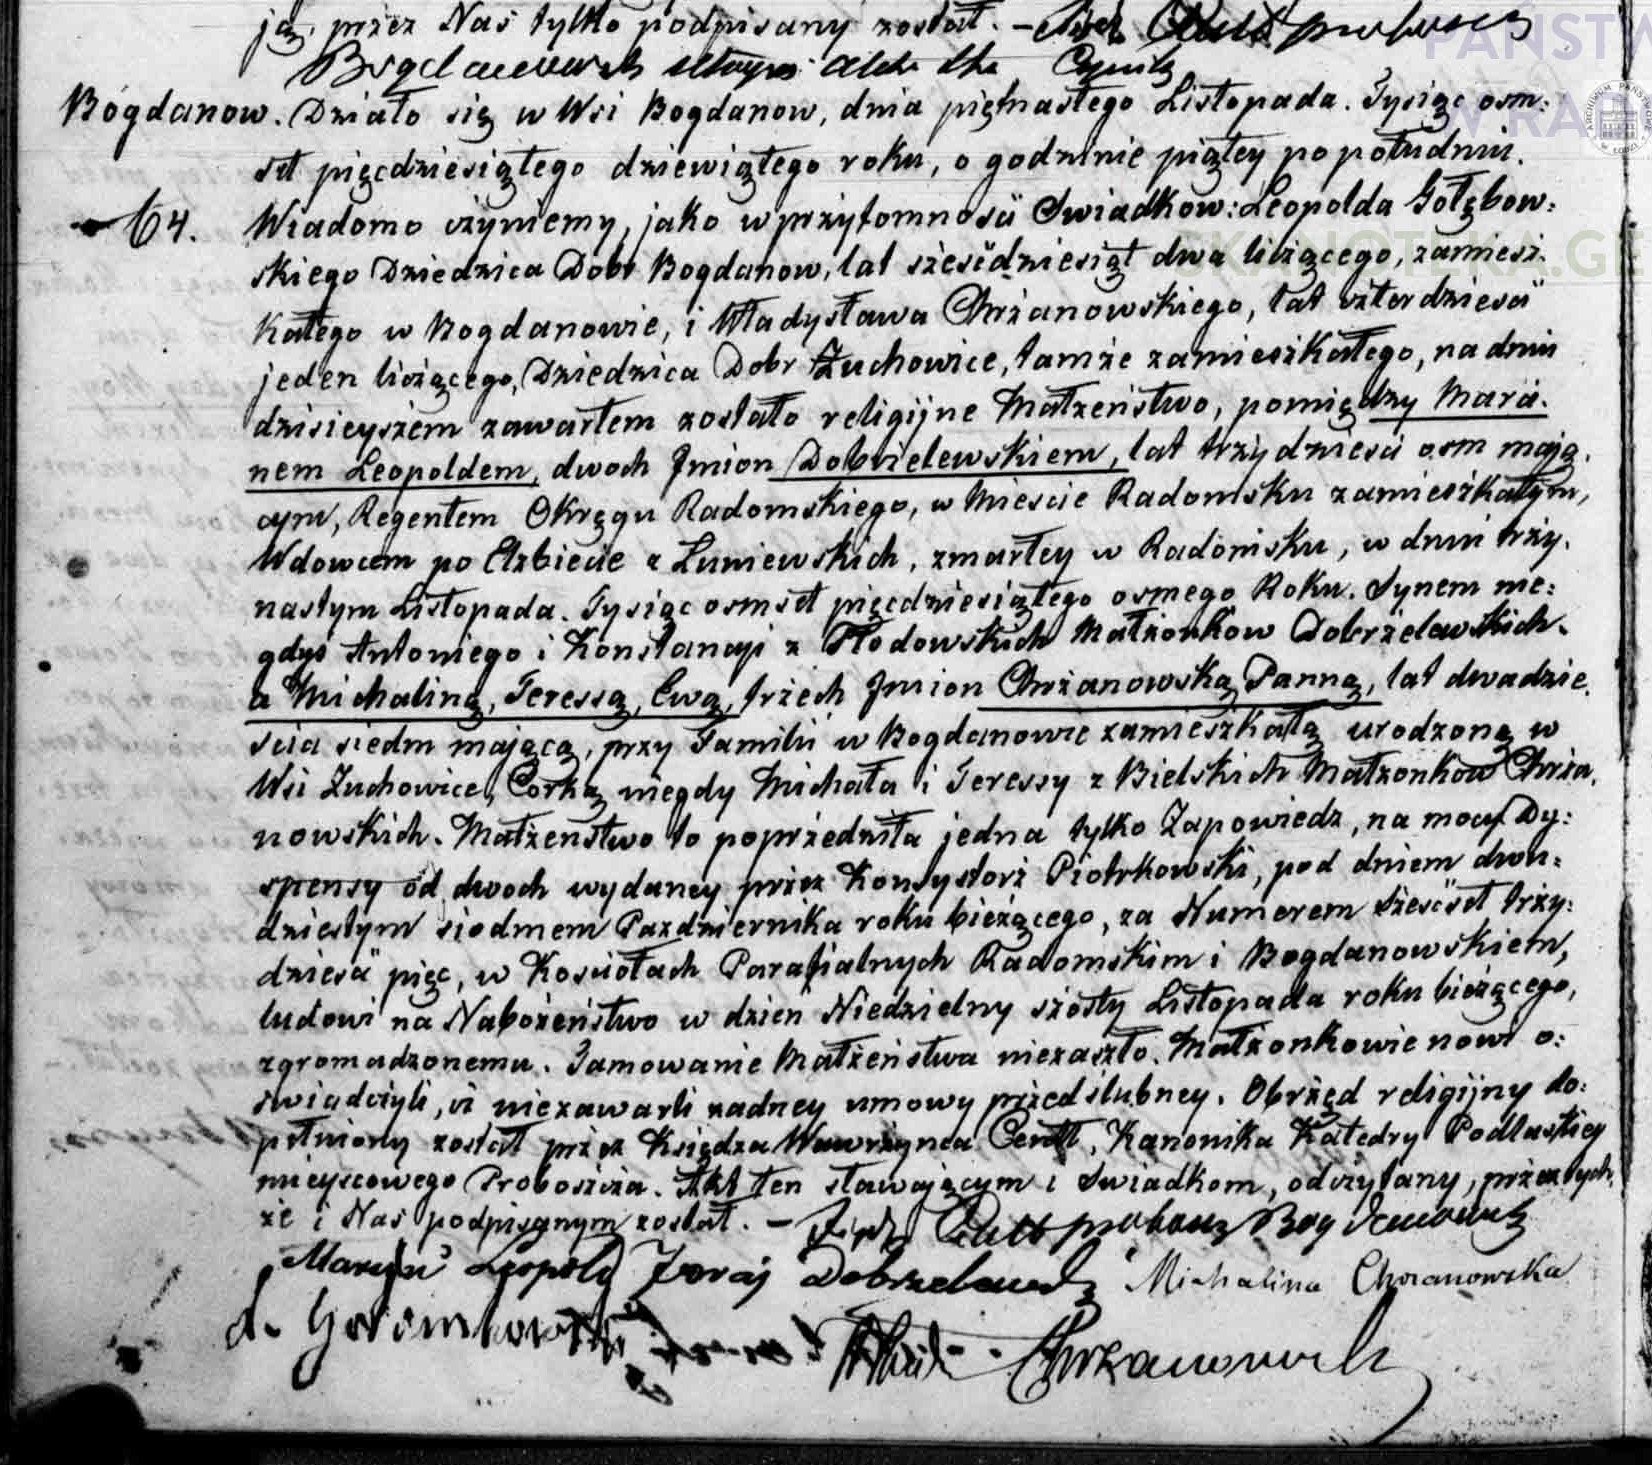 ją, przez Nas tylko podpisany został. –
Bogdanow. Działo się w Wsi Bogdanow, dnia piętnastego Listopada. Tysiąc osm:
set pięcdziesiątego dziewiątego roku, o godzinie piątey po południu.
64. Wiadomo czyniemy, jako w przytomnosci Swiadkow: Leopolda Gołębow:
skiego Dziedzica Dobr Bogdanow, lat szescdziesiąt dwa liczącego, zamiesz.
kałego w Bogdanowie, i Władysława Chrzanowskiego, lat czterdziesci
jeden liczącego, Dziedzica Dobr Zuchowice, tamże zamieszkałego, na dniu
dzisieyszem zawartem zostało religijne Małżeństwo, pomiędzy Marci.
nem Leopoldem, dwoch Jmion Dobrzelewskiem, lat trzydziesci osm mają.
cym, Regentem Okręgu Radomskiego, w Miescie Radomsku zamieszkałym,
Wdowcem po Elzbiecie z Łuniewskich, zmarłey w Radomsku, w dniu trzy.
nastym Listopada. Tysiąc osmset pięcdziesiątego osmego Roku. Synem nie:
gdyś Antoniego i Konstancyi z Kłodowskich Małżonkow Dobrzelewskich.
a Michaliną, Teressą, Ewą, trzech Jmion Chrzanowską Panną, lat dwadzie.
scia siedm mającą, przy Familii w Bogdanowie zamieszkałą urodzoną w
Wsi Zuchowice, Corką niegdy Michała i Teressy z Bielskich Małzonkow Chrza.
nowskich. Małżeństwo to poprzedziła jedna tylko Zapowiedz, na mocy Dy:
spensy od dwoch wydaney przez Konsystorz Piotrkowski, pod dniem dwu:
dziestym siodmem Pazdziernika roku bieżącego, za Numerem szescset trzy:
dziesci pięc, w Kosciołach Parafialnych Radomskim i Bogdanowskiem,
ludowi na Nabożeństwo w dzien Niedzielny szosty Listopada roku bieżącego,
zgromadzonemu. Tamowanie Małżeństwa niezaszło. Małżonkowie nowi o:
swiadczyli, iż niezawarli zadney umowy przedślubney. Obrzęd religijny do:
pełniony został przez Księdza Wawrzynca Centt, Kanonika Katedry Podlaskiey
mieyscowego Proboszcza. Akt ten stawającym i Swiadkom, odczytany, przez tych.
że i Nas podpisanym został. –
Leopold Dobrzelewski Michalina Chrzanowska
Chrzanowski
PAŃSTW
W RAD
SKANOTEKA.GE